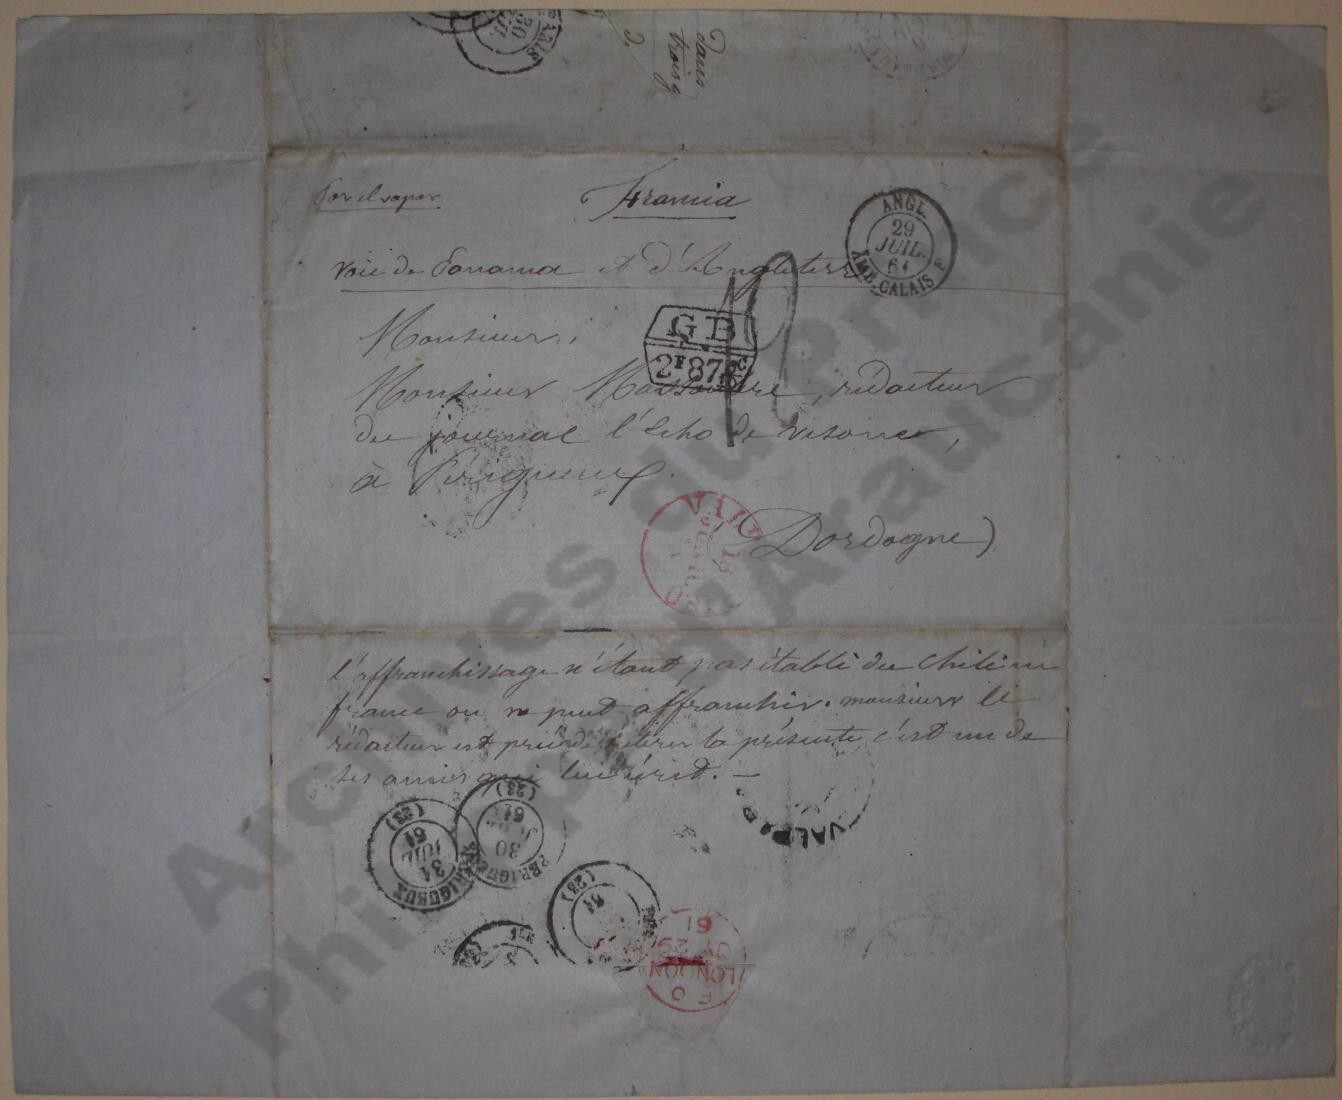 PARIS
dans
trois
Por el vapor
Francia
ANGL.
29
JUIL.
61
AMB. CALAIS F
voie de Panama et d'Angleterre
GB
2F87
12
Monsieur,
Monsieur Massoubre, rédacteur
du journal l'Echo de Vesone,
à Périgueux
Dordogne)
VALP
18
l'affranchissage n'étant pas établi du chili en
france on ne peut affranchir. monsieur le
rédacteur est prié de retirer la présente c'est un de
ses amies qui lui écrit. —
VALP
PERIGUEUX
31
JUIL
61
(23)
PERIGUEUX
30
61
(23)
61
(23)
F O
LONDON
JY 29
61
Archives du Prince
Philippe d'Araucanie